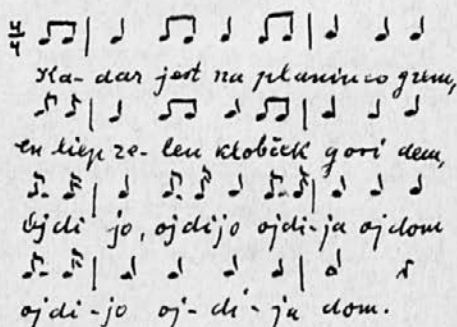 4/4
Ka-dar jest na planinco grem,
en liep ze-len klobček gori dem,
ojdi jo, ojdijo ojdi-ja ojdom
ojdi-jo oj-di-ja dom.